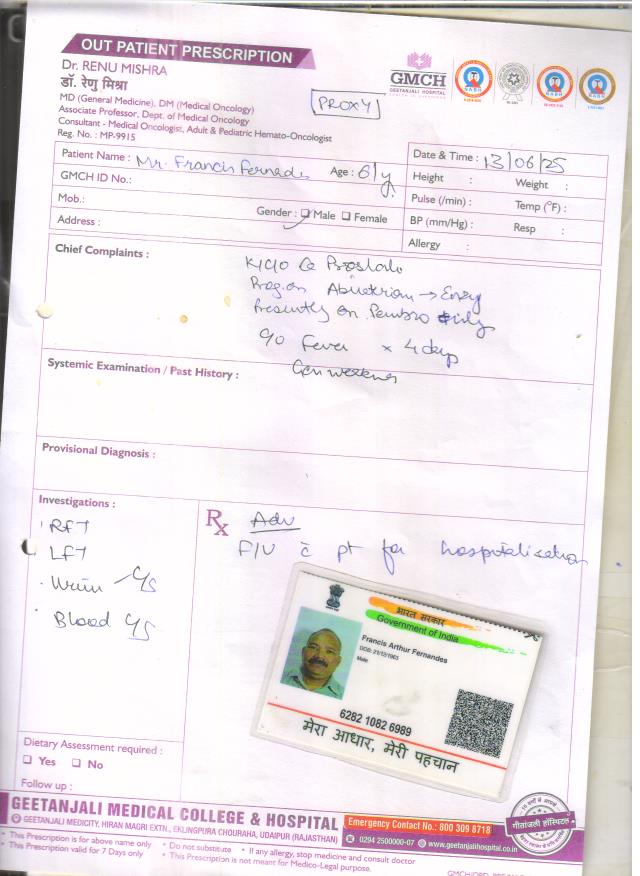 OUT PATIENT PRESCRIPTION
Dr. RENU MISHRA
डॉ. रेणु मिश्रा
MD (General Medicine), DM (Medical Oncology)
Associate Professor, Dept. of Medical Oncology
Consultant - Medical Oncologist, Adult & Pediatric Hemato-Oncologist
Reg. No. : MP-9915
PROXY
GMCH
GEETANJALI HOSPITAL
Patient Name : Mr. Francis Fernades Age : 61y
GMCH ID No.:
Mob.:
Gender : Male Female
Address :
Date & Time : 13/06/25
Height : Weight :
Pulse (/min) : Temp (°F) :
BP (mm/Hg) : Resp :
Allergy :
Chief Complaints :
K/C/O Ca Prostate
Prog. on →
Presently on
C/O Fever x 4 days
Gen weakness
Systemic Examination / Past History :
Provisional Diagnosis :
Investigations :
RFT
LFT
Urine C/S
Blood C/S
Rx Adv
F/U c̄ pt for hospitalisation
भारत सरकार
Government of India
Francis Arthur Fernandes
DOB: 21/12/1963
Male
6282 1082 6989
मेरा आधार, मेरी पहचान
Dietary Assessment required :
Yes No
Follow up :
GEETANJALI MEDICAL COLLEGE & HOSPITAL
GEETANJALI MEDICITY, HIRAN MAGRI EXTN., EKLINGPURA CHOURAHA, UDAIPUR (RAJASTHAN)
Emergency Contact No.: 800 309 8718
0294 2500000-07 www.geetanjalihospital.co.in
गीतांजली हॉस्पिटल
• This Prescription is for above name only • Do not substitute • If any allergy, stop medicine and consult doctor
• This Prescription valid for 7 Days only • This Prescription is not meant for Medico-Legal purpose.